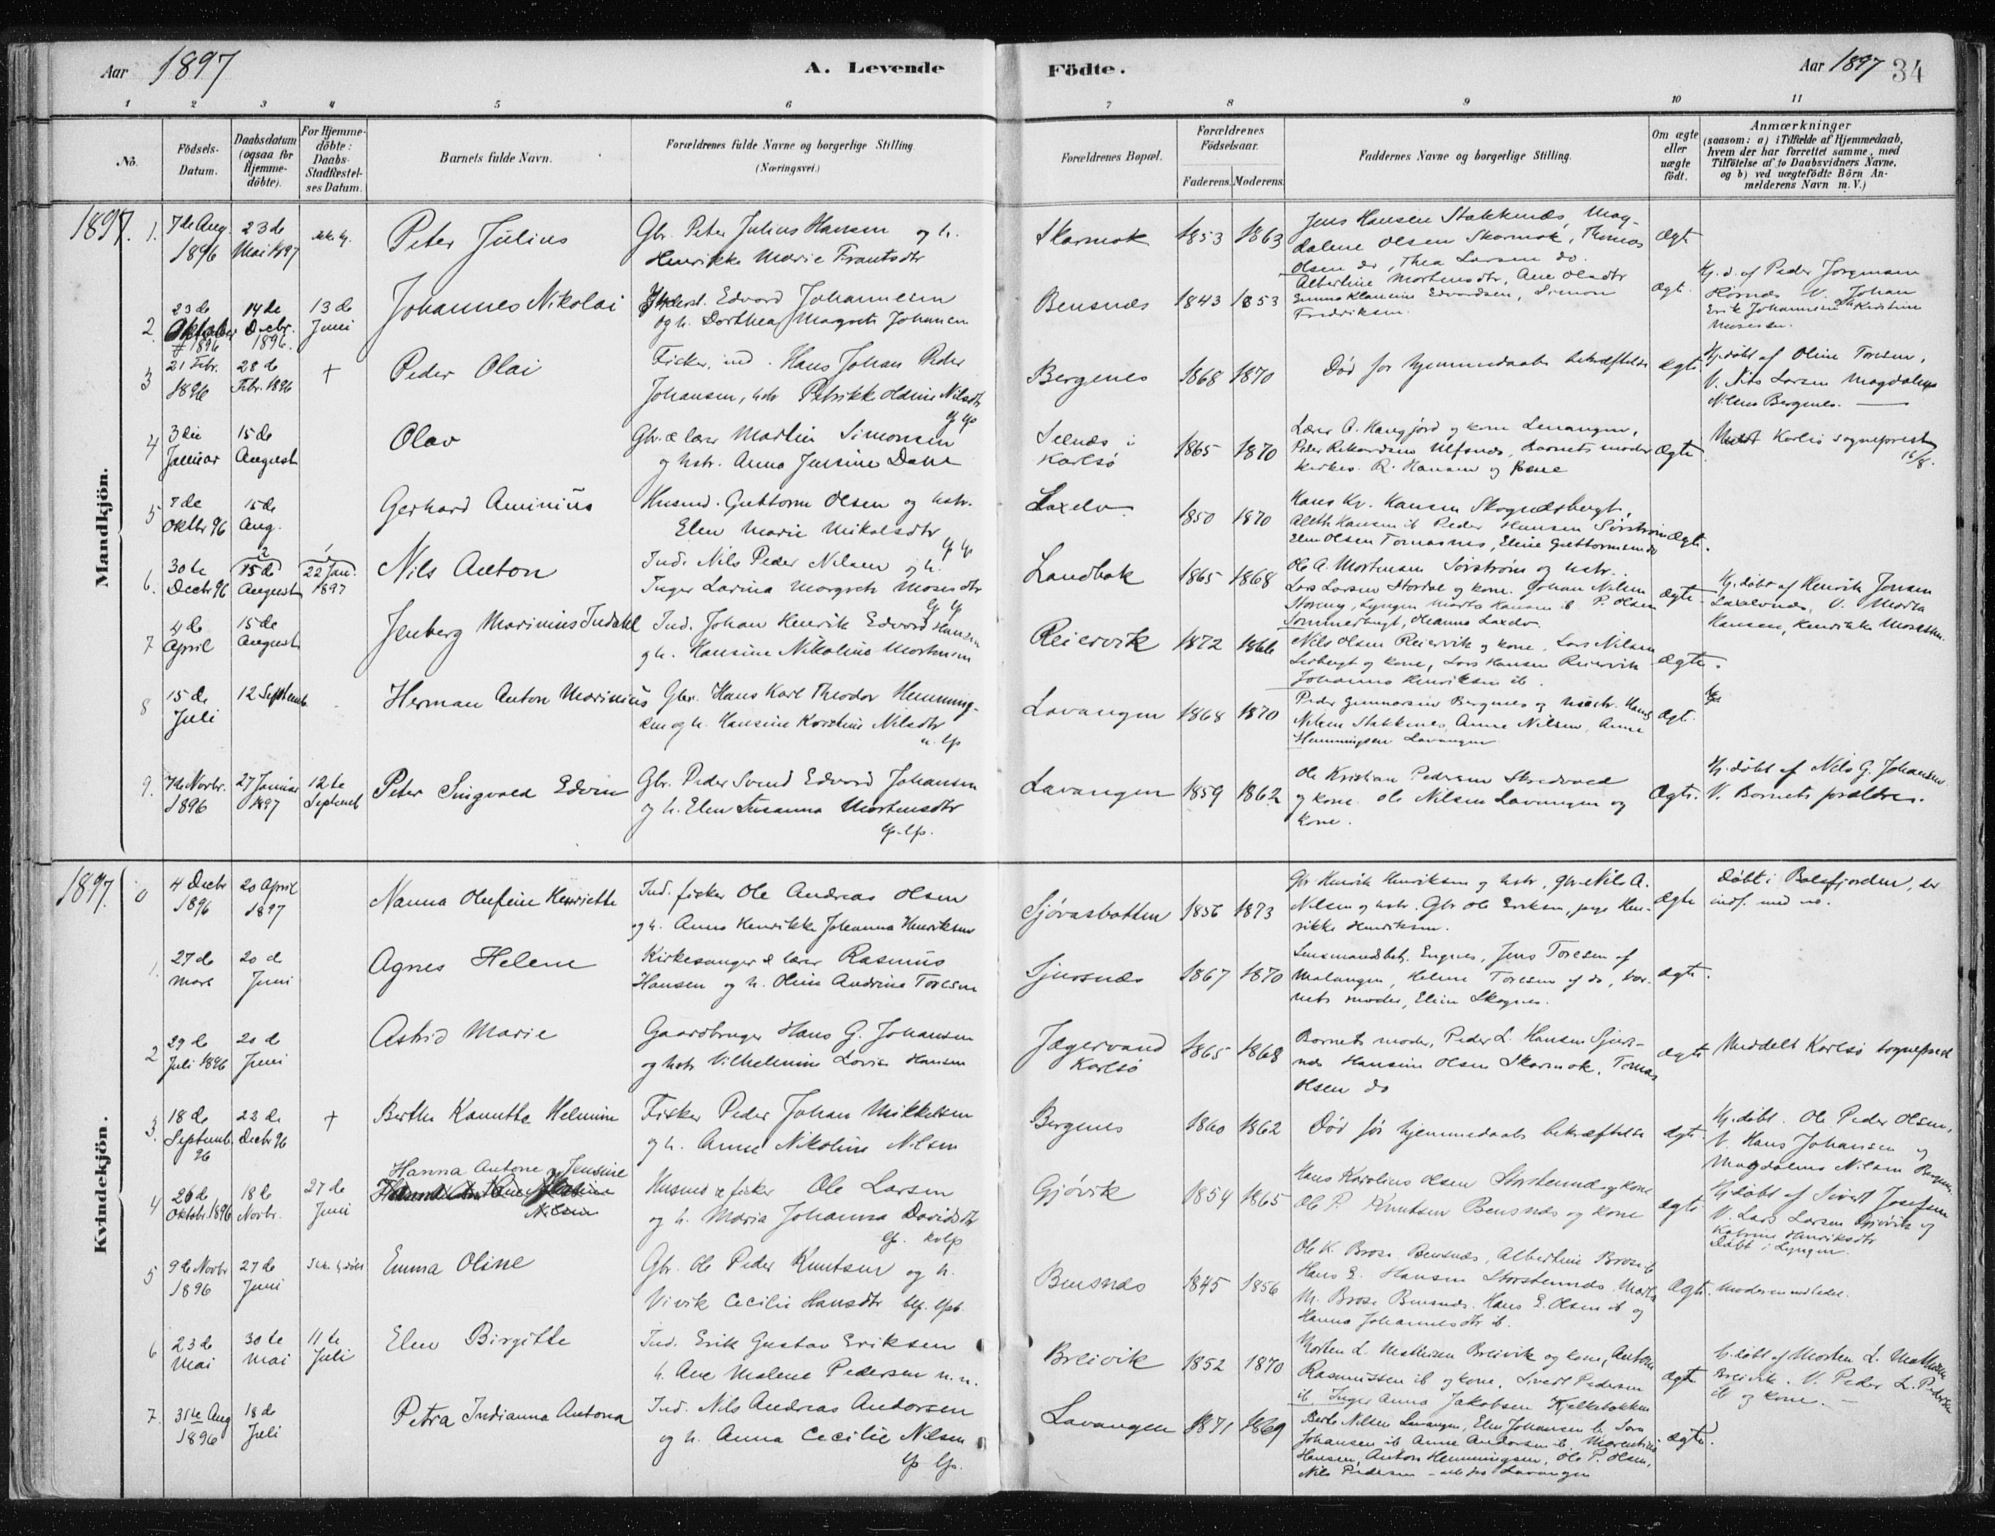 Aar 1897
A. Levende
Födte.
Aar 1897
34
1 2 3 4 5 6 7 8 9 10 11
Nö.
Födsels-
Datum.
Daabsdatum
(ogsaa for
Hjemme-
döbte).
For Hjemme-
döbte:
Daabs-
Stadfæstel-
ses Datum.
Barnets fulde Navn.
Forældrenes fulde Navne og borgerlige Stilling
(Næringsvei.)
Forældrenes Bopæl.
Forældrenes
Födselsaar.
Faderens. Moderens.
Faddernes Navne og borgerlige Stilling.
Om ægte
eller
uægte
födt.
Anmærkninger
(saasom: a) i Tilfælde af Hjemmedaab,
hvem der har forrettet samme, med
Tilföielse af to Daabsvidners Navne,
og b) ved uægtefödte Börn An-
melderens Navn m. V.)
Mandkjön.
1897.
1. 7de Aug.
1896
23de
Mai 1897
Peter Julius
Gbr. Peter Julius Hansen og h.
Henrikke Marie Frantsdtr
Skarmok
1853 1863
Jens Hansen Stakkenæs, Mag-
dalene Olsen Skarmok, Thomas
Olsen do, Thea Larsen do.
Ægt
2. 23de
Oktober
1896
14de
Decbr.
1896.
13de
Juni
Johannes Nikolai
Edvard Johannesen
og h. Dorthea Magrete Johansen
Bensnæs
1843 1853
Albertine Mortensdtr, Ane Olsdtr
Emma Klausine Edvardsen, Simon
Fredriksen.
Ægt.
Hj. d. af Peder Jörgensen
V. Johan
Erik Johannesen Kristine
3 21 Febr.
1896
28de
Febr. 1896
+
Peder Olai
Fisker, ind. Hans Johan Peder
Johansen, hstr Petrikke Oldine Nilsdtr
Bergenes
1868 1870
Död för hjemmedaabs bekræftelse
ægte
Hj.döbt af Oline Toresen,
V. Nils Larsen Magdalena
Nilsen Bergenes.
4 3die
Januar
15de
August
Olav
Gbr. & lærer Martin Simonsen
og hstr. Anna Jensine Dahl
i
Karlsö
1865 1870
Lærer A. Haugfjord og kone Lenangen,
Barnets moder
R. Hansen og kone
Ægte
Karlsö sogneprest
16/8.
5 7de
Oktbr 96
15de
Aug.
Gerhard Aminius
Husmd. Guttorm Olsen og hstr.
Elen Marie Mikalsdtr
Laxelv
1850 1870
Hans Kr. Hansen Skognæsbergt,
Aleth Hansen ib Peder Hansen Sörström
Elen Olsen Tomasnes, Eline Guttormsen do
Ægte.
6. 30te
Decbr 96
15de
August
22 Jan.
1897
Nils Anton
Ind. Nils Peder Nilsen og h.
Inger Larina Margrete Mosesdtr
Landbak
1865 1868
Ole A. Mortensen Sörström og hstr.
Lars Larsen Stordal og kone. Johan Nilsen
Lyngen Marta Hansen ib. P. Olsen
Sommerbugt, Oleanna Laxelv.
Ægte.
Hj.döbt af Henrik Jensen
Laxelvnæs, V. Marta
Hansen, Henrikke
7 4de
April
15de
August
Jenberg Marinius Indahl
Ind. Johan Henrik Edvard Hansen
og h. Hansine Nikoline Mortensen
Reiervik
1872 1866
Nils Olsen Reiervik og kone, Lars Nilsen
og kone, Lars Hansen Reiervik
Johanna Henriksen ib.
ægte.
8 15de
Juli
12 Septemb
Herman Anton Marinius
Gbr. Hans Karl Theodor Hemming-
sen og h. Hansine Karoline Nilsdtr
Lavangen
1868 1870
Peder Gunnarsen Bergenes og hustr. Hans
Nilsen Stakkenes, Anne Nilsen, Anne
Hemmingsen Lavangen
Ægt.
9. 7de Novbr.
1896
27 Januar
1897
12te
Septemb
Peter Singvald Edvin
Gbr. Peder Svend Edvard Johansen
og h. Elen Susanna Mortensdtr
Lavangen
1859 1862
Ole Kristian Pedersen Skredsved
og kone. Ole Nilsen Lavangen og
kone.
Ægte.
Hj. döbt af Nils G. Johansen
V. Barnets forældre.
Kvindekjön.
1897.
0 4 Decbr
1896
20 April
1897
Nanna Olufine Henriette
Ind. fisker Ole Andreas Olsen
og h. Anna Henrikke Johanna Henriksen
Sjövasbotten
1856 1873
Gbr Henrik Henriksen og hstr, gbr Nils A.
Nilsen og hstr. Gbr Ole Eriksen, pige Hen-
rikke Henriksen.
Ægte
Döbt i Balsfjorden, der
indf. med no.
1. 27de
Mars
20de
Juni
Agnes Helene
Kirkesanger & lærer Rasmus
Hansen og h. Oline Andrine Toresen
Sjursnæs
1867 1870
Lensmandsbetj. Engnes, Jens Toresen af
Malangen, Helene Toresen af do, bar-
nets moder, Eline Skognes.
ægte.
2 29de
Juli 1896
20de
Juni
Astrid Marie
Gaardbruger Hans G. Johansen
og hstr Vilhelmine Lovise Hansen
Jægervand
Karlsö
1865 1868
Barnets moder, Peder L. Hansen Sjurs-
næs Hansine Olsen Skarmok, Tomas
Olsen do
ægte
Meddelt Karlsö sogneprest
3. 18de
Septemb.
96
22de
Decbr 96
+
Berthe Kanutte Helmine
Fisker Peder Johan Mikkelsen
og h. Anne Nikoline Nilsen
Bergenes
1860 1862
Död för hjemmedaabs bekræftelse
ægte
Hj.döbt. Ole Peder Olsen,
V. Hans Johansen og
Magdalena Nilsen Bergenes
4 26de
Oktobr. 1896
18de
Novbr.
27de
Juni
Hanna Antone Jensine
Nilsen
Husmd & fisker Ole Larsen
og h. Maria Johanna Davidsdtr
Gjövik
1854 1865
Hans Karolius Olsen Storstennæs og kone
Ole P. Knutsen Bensnæs og kone
ægte
Hj.döbt af Sivert Josefsen
V. Lars Larsen Gjövik og
Katrine Henriksdtr
Döbt i Lyngen.
5 9de Novbr
1896
27de
Juni
Emma Oline
Gbr. Ole Peder Knutsen og h.
Vivik Cecilie Hansdtr
Bensnæs
1845 1856
Ole K. Brose Bensnæs, Albertine Brose ib
Hans E. Hansen Storstennæs, Marta
M. Brose Bensnæs. Hans E. Olsen ib og
Hanna Johannesdtr ib.
Ægte.
6 23de
Mai
30te
Mai
11te
Juli
Elen Birgitte
Ind. Erik Gustav Eriksen
h. Ane Malene Pedersen
Breivik
1852 1870
Morten L. Mathisen Breivik og kone, Anton
Rasmussen ib og kone, Sivert Pedersen
ib, Inger Anna Jakobsen Kjelkebakken
ægte
Hj.döbt af Morten L. Mathisen
Breivik. V. Peder L. Pedersen
ib og kone.
7. 31te Aug
1896
18de
Juli
Petra Indianna Antona
Ind. Nils Andreas Andorsen
og h. Anna Cecilie Nilsen
Lavangen
1871 1869
Berte Nilsen Lavangen, Elen Johansen ib, Lars
Johansen ib Anne Andorsen ib, Marentine
Hansen, Anton Hemmingsen, Ole P. Olsen,
Nils Pedersen – alle fra Lavangen
ægte.